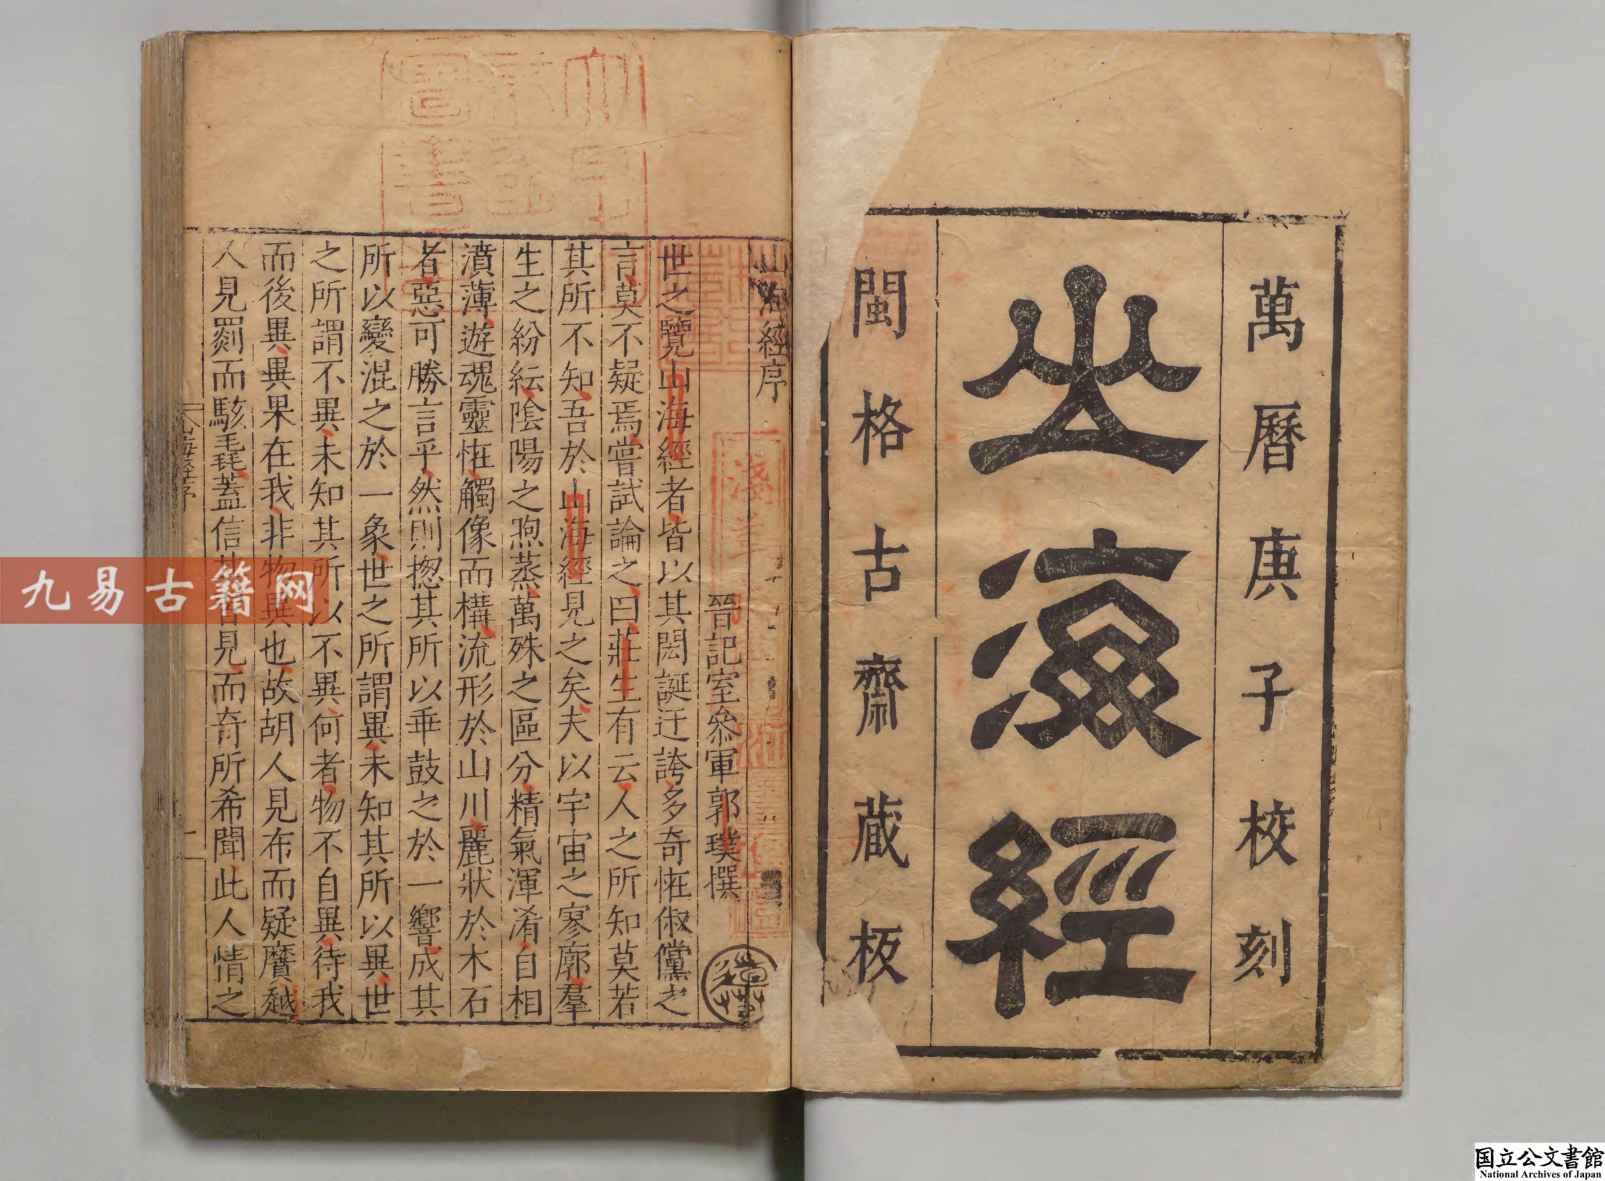 萬曆庚子校刻
山海經
閩格古齋藏板
山海經序
晉記室參軍郭璞撰
世之覽山海經者皆以其閎誕迂誇多奇恠俶儻之
言莫不疑焉嘗試論之曰莊生有云人之所知莫若
其所不知吾於山海經見之矣夫以宇宙之寥廓羣
生之紛紜陰陽之煦蒸萬殊之區分精氣渾淆自相
濆薄遊魂靈恠觸像而構流形於山川麗狀於木石
者惡可勝言乎然則揔其所以乖鼓之於一響成其
所以變混之於一象世之所謂異未知其所以異世
之所謂不異未知其所以不異何者物不自異待我
而後異異果在我非物異也故胡人見布而疑黂越
人見罽而駭毳蓋信其習見而奇所希聞此人情之
九易古籍网
国立公文書館
National Archives of Japan